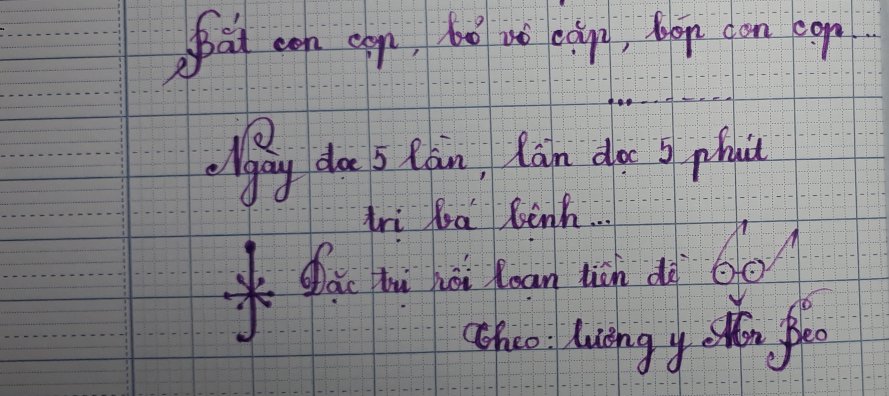 Bắt con cọp, bỏ vô cặp, bóp con cọp...
Ngày đọc 5 lần, lần đọc 5 phút
trị bá bệnh...
Đặc trị rối loạn tiền đề
Theo: lương y Béo